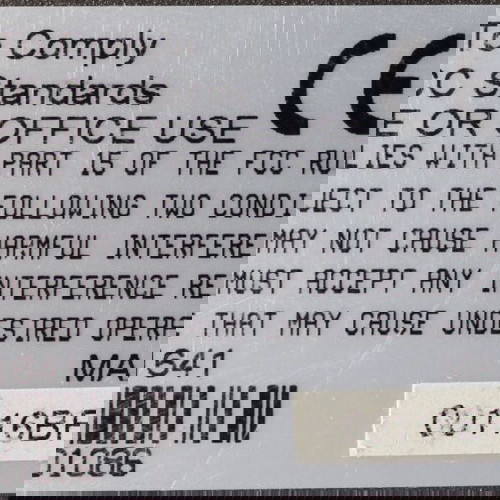 To Comply
C Standards CE
E OR OFFICE USE
PART 15 OF THE FCC RULIES WITH
FOLLOWING TWO CONDIJECT TO THE
HARMFUL INTERFEREMAY NOT CAUSE
INTERFERENCE REMUST ACCEPT ANY
UNDESIRED OPERA THAT MAY CAUSE
MA 641
01086